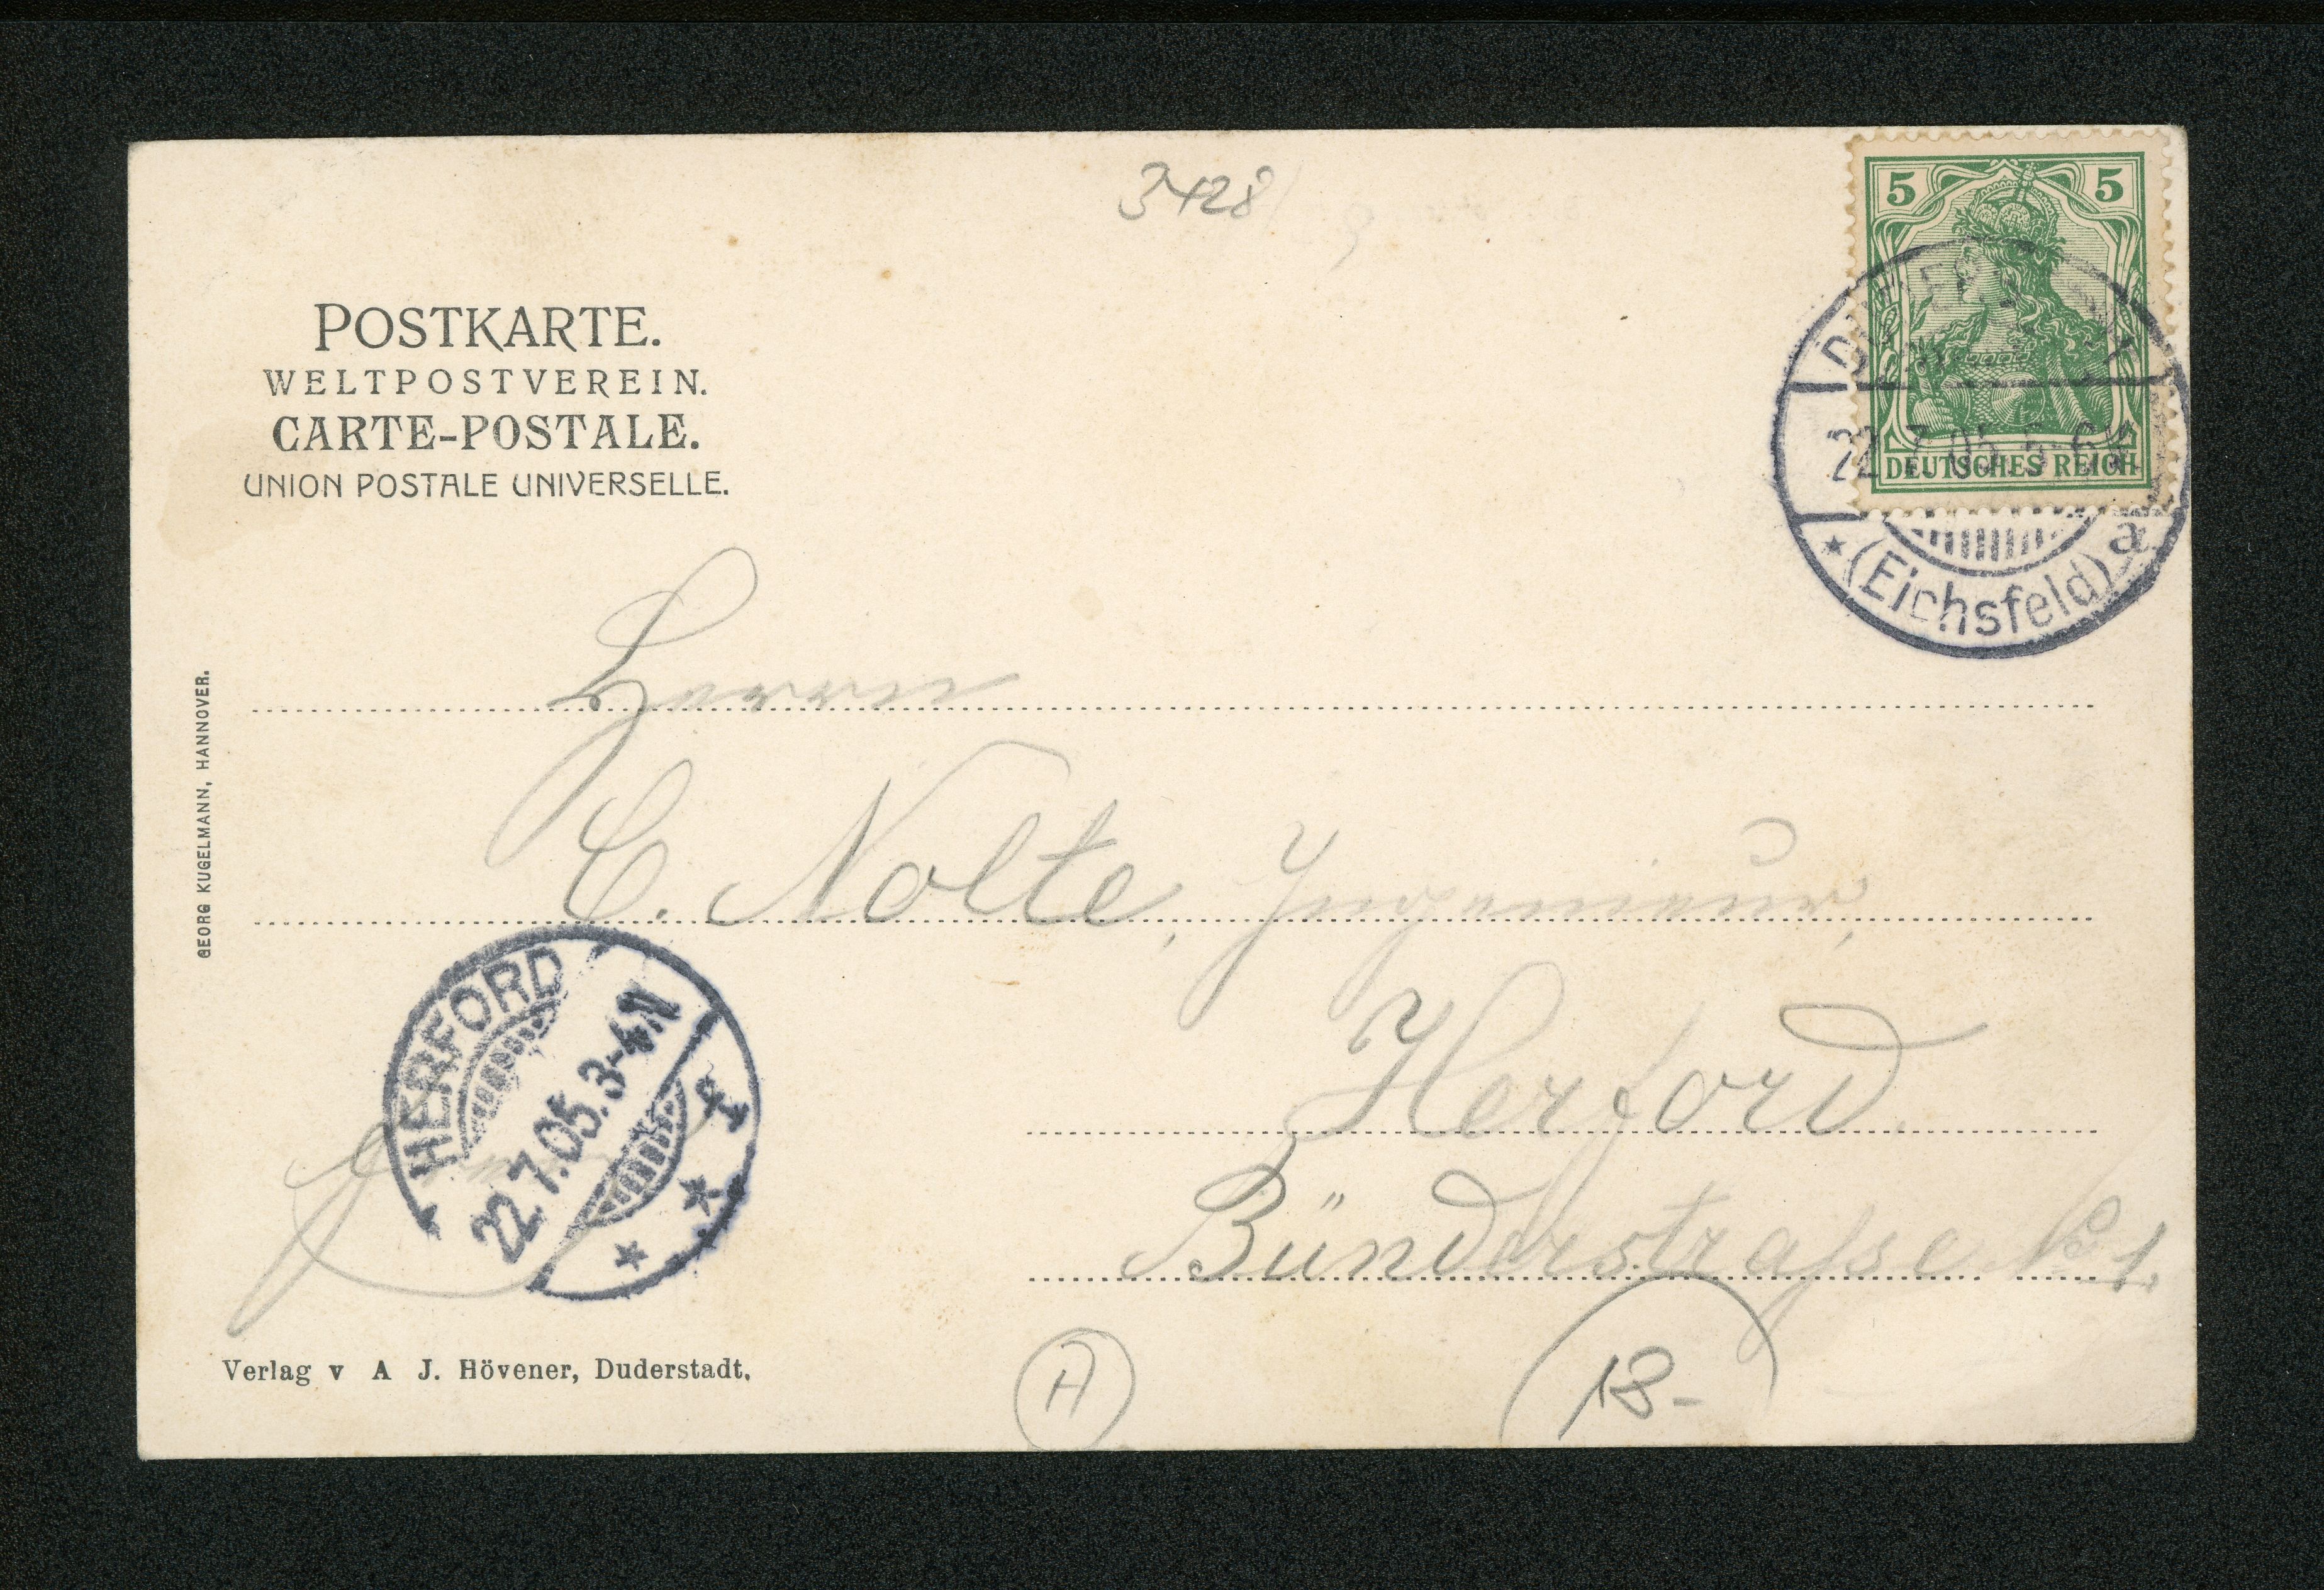 3428
5 5
DEUTSCHES REICH
22.7.05.5-6V
* (Eichsfeld) a
POSTKARTE.
WELTPOSTVEREIN.
CARTE-POSTALE.
UNION POSTALE UNIVERSELLE.
GEORG KUGELMANN, HANNOVER.
Herrn
C. Nolte, Ingenieur,
Herford.
Bünderstrasse
HERFORD
22.7.05.3-4N
* * *
Verlag v A J. Hövener, Duderstadt.
A
18-